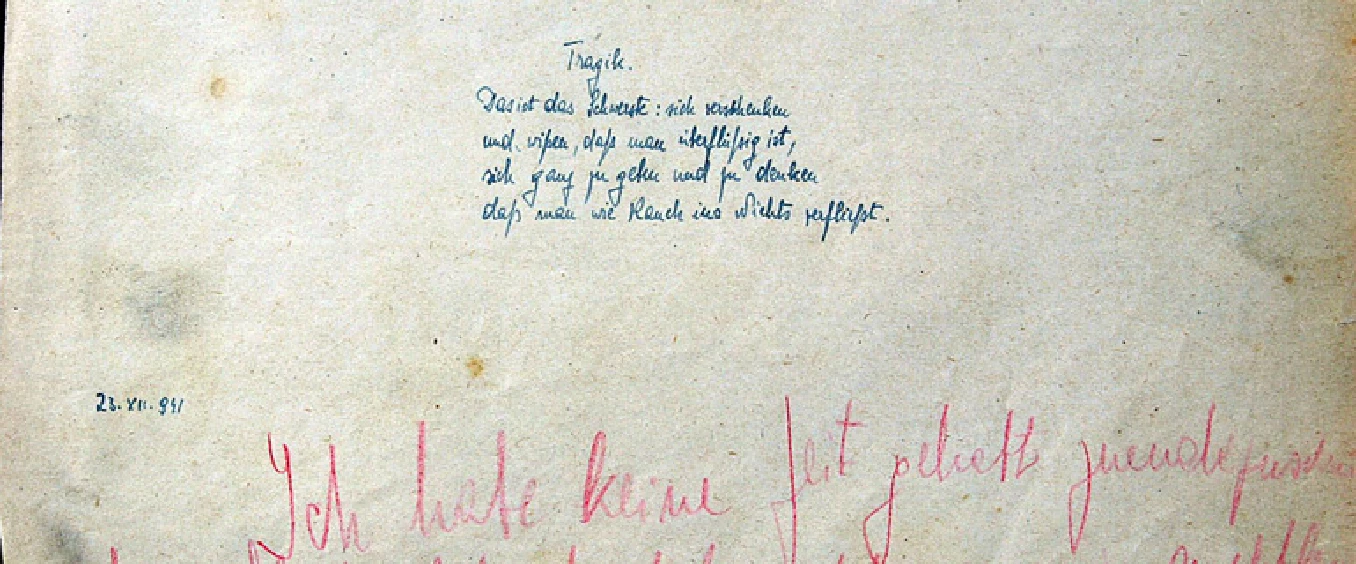 Tragik.
Das ist das Schwerste: sich verschenken
und wißen, daß man überflüßig ist,
sich ganz zu geben und zu denken
daß man wie Rauch ins Nichts verfließt.
23.XII.941
Ich habe keine Zeit gehabt zuende